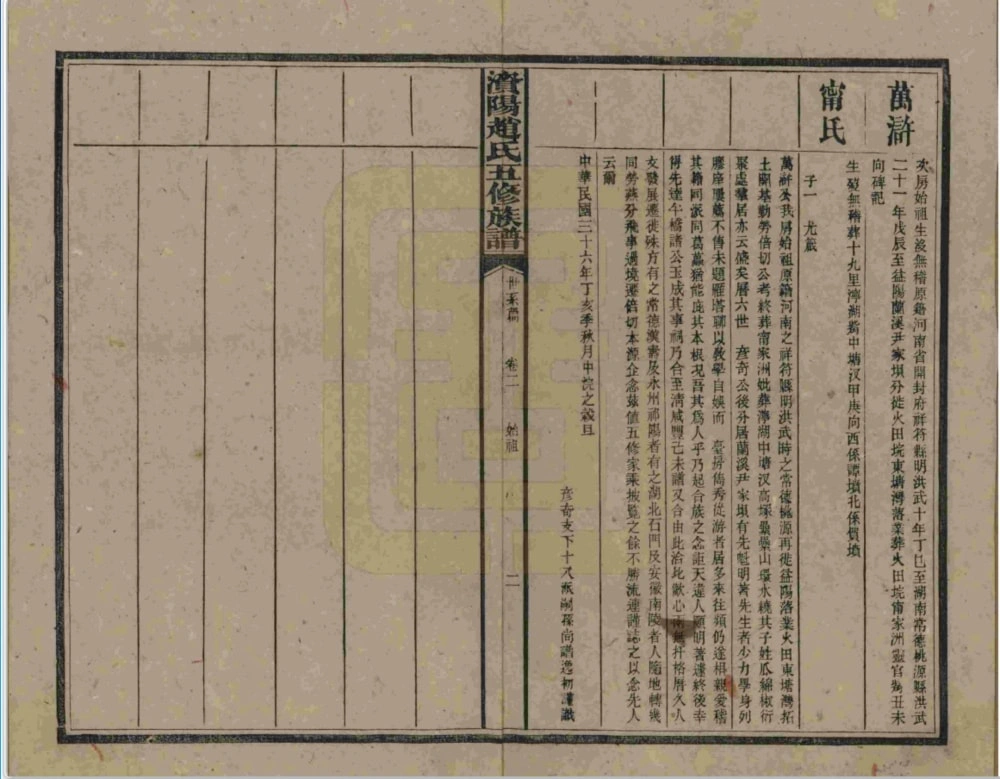 萬滸
次房始祖生歿無稽原籍河南省開封府祥符縣明洪武十年丁巳至湖南常德桃源縣洪武
二十一年戊辰至益陽蘭溪尹家垻分徙火田垸東塘灣落業葬火田垸甯家洲靈官嘴丑未
向碑記
甯氏
生歿無稽葬十九里濘湖嘴中塘汊甲庚向西係譚墳北係賀墳
子一 尤籤
萬滸公我房始祖原籍河南之祥符縣明洪武時之常德桃源再徙益陽落業火田東塘灣拓
土開基勤勞倍切公考終葬甯家洲妣葬濘湖中塘汊高塜纍纍山環水繞其子姓瓜綿椒衍
聚處羣居亦云僥矣曆六世 彥奇公後分居蘭溪尹家垻有先魁明著先生者少力學身列
膠庠屢薦不售未題雁塔聊以敎學自娛而 臺井儁秀從游者居多來往頻仍遂相親愛稽
其籍同派同葛藟猶能庇其本根况吾其爲人乎乃起合族之念詎天違人願明著遽終後幸
得先達午橋諸公玉成其事祠乃合至淸咸豐己未譜又合由此洽比歡心 杆格曆久人
支發展遷徙殊方有之常德漢壽及永州祁陽者有之湖北石門及安徽南陵者人隨地轉幾
同勞燕分飛事過境遷倍切本源企念茲値五修家乘披覽之餘不勝流連謹誌之以念先人
云爾
中華民國三十六年丁亥季秋月中浣之穀旦
彥奇支下十八派嗣孫尚譜逸初謹識
濱陽趙氏五修族譜
世系篇 卷二 始祖 二